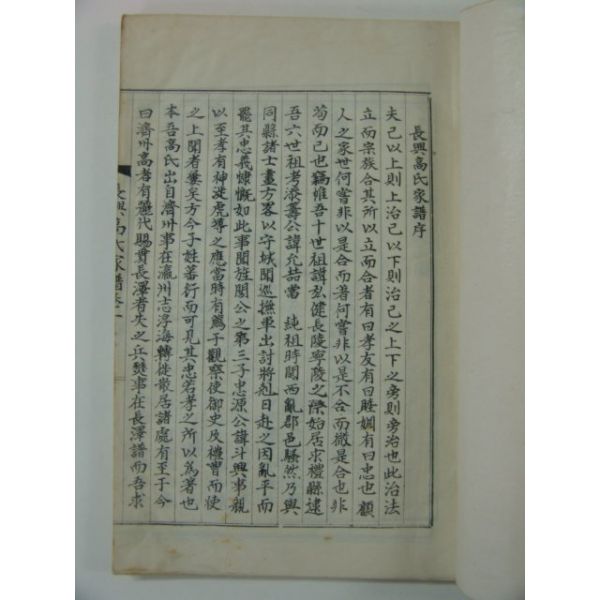 長興高氏家譜序
夫己以上則上治己以下則治己之上下之旁則旁治也此治法
立而宗族合其所以立而合者有曰孝友有曰睦婣有曰忠也顧
人之家世何嘗非以是合而著何嘗非以是不合而微是合也非
苟而已也竊維吾十世祖諱弘健長陵寧陵之際始居求禮縣逮
吾六世祖考添壽公諱允喆當 純祖時関西亂郡邑騷然乃與
同縣諸士畫方畧以守城聞巡撫車出討將剋日赴之因亂平而
罷其忠義慷慨如此事聞旌閭公之第三子忠源公諱斗興事親
以至孝有神逆虎導之應當時有薦于觀察使御史及禮曹而使
之上聞者屢矣方今子姓蕃衍而可見其忠若孝之所以爲著也
本吾高氏出自濟州事在瀛州志浮海轉徙散居諸處有至于今
曰濟州高者有麗代賜貫長澤者失之兵燹事在長澤譜而吾求
長興高氏家譜卷之一